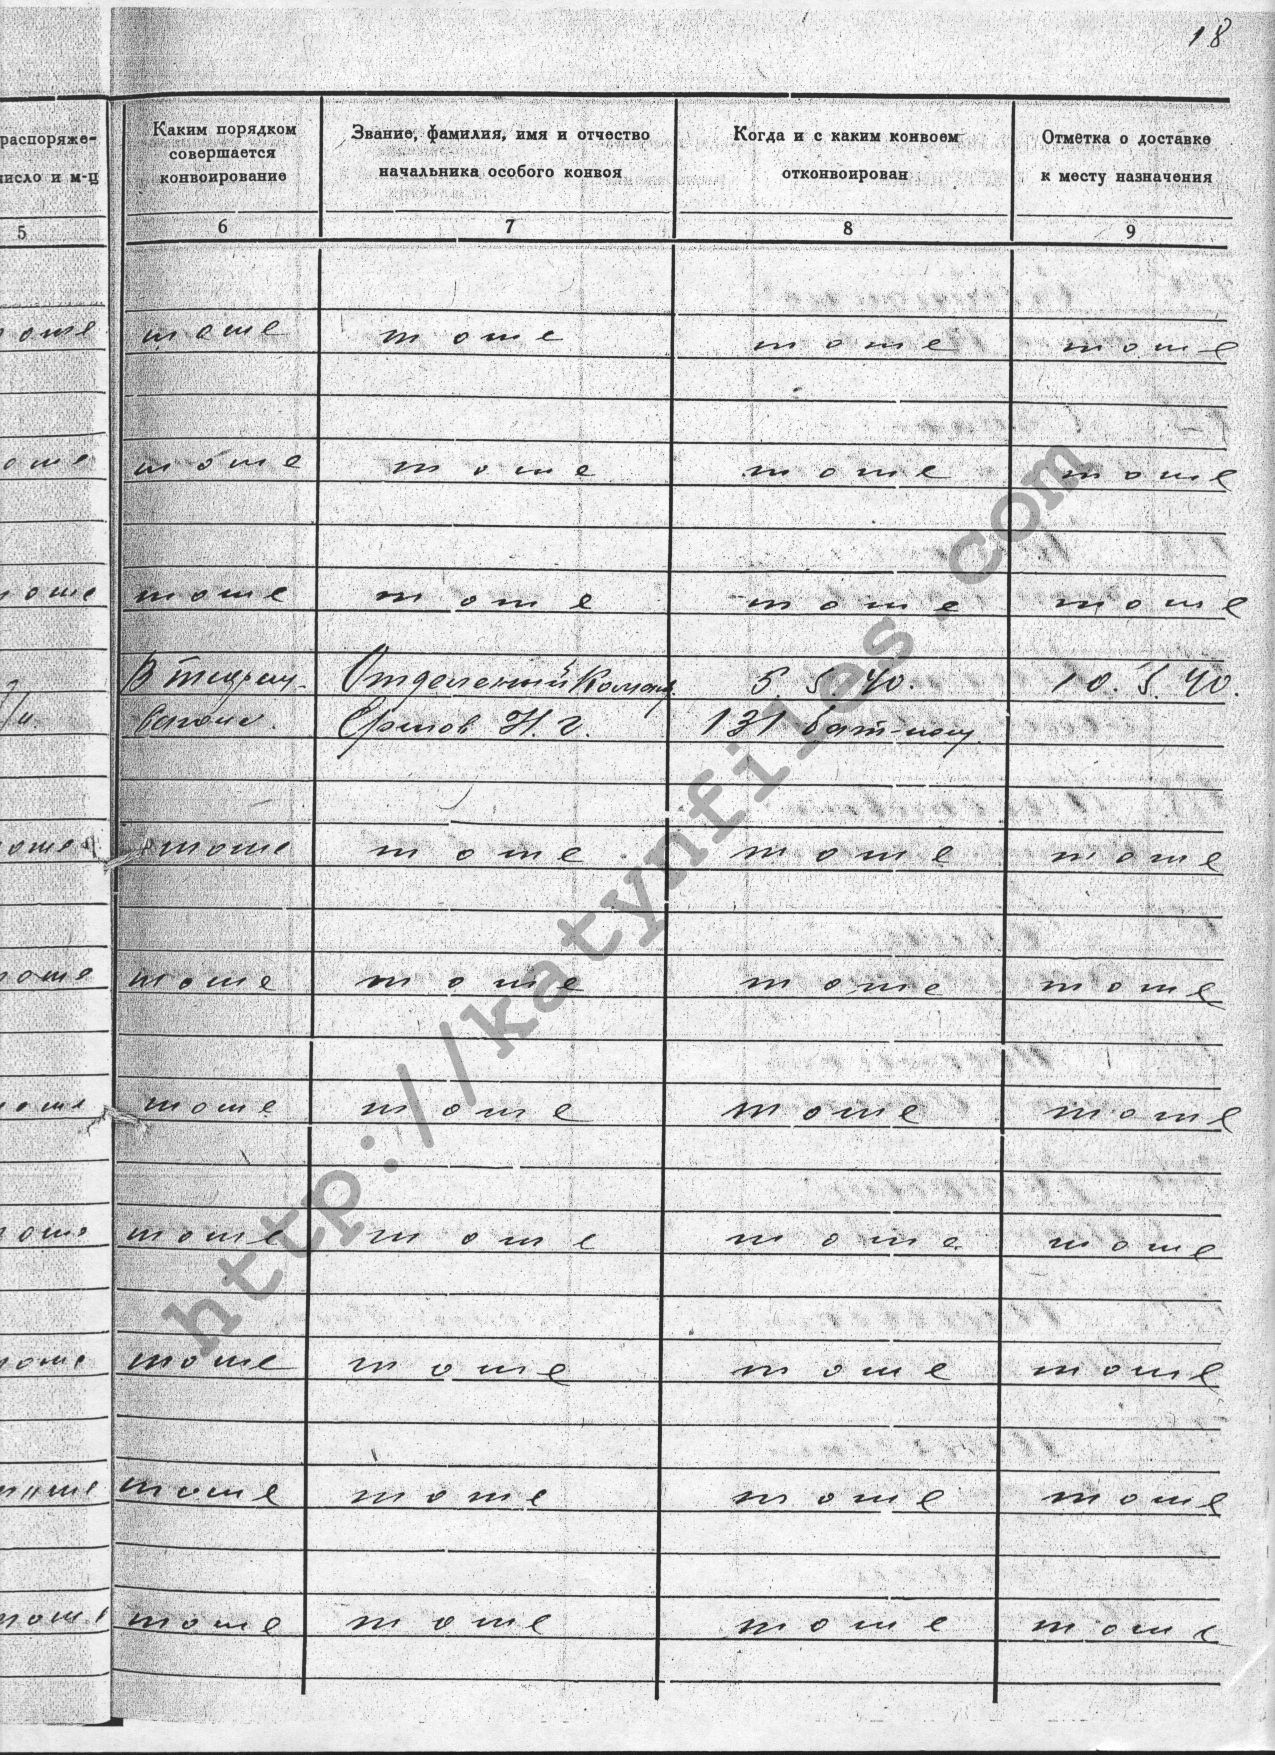 18
распоряже-
число и м-ц
5
Каким порядком
совершается
конвоирование
6
Звание, фамилия, имя и отчество
начальника особого конвоя
7
Когда и с каким конвоем
отконвоирован
8
Отметка о доставке
к месту назначения
9
тоже тоже тоже тоже тоже
тоже тоже тоже тоже тоже
тоже тоже тоже тоже тоже
В тюрем. Отделенный Команд. 5. 5. 40. 10. 5. 40.
вагоне. Н. Г. 131 бат-ном
тоже тоже тоже тоже тоже
тоже тоже тоже тоже тоже
тоже тоже тоже тоже тоже
тоже тоже тоже тоже тоже
тоже тоже тоже тоже тоже
тоже тоже тоже тоже тоже
тоже тоже тоже тоже тоже
http://katynfiles.com